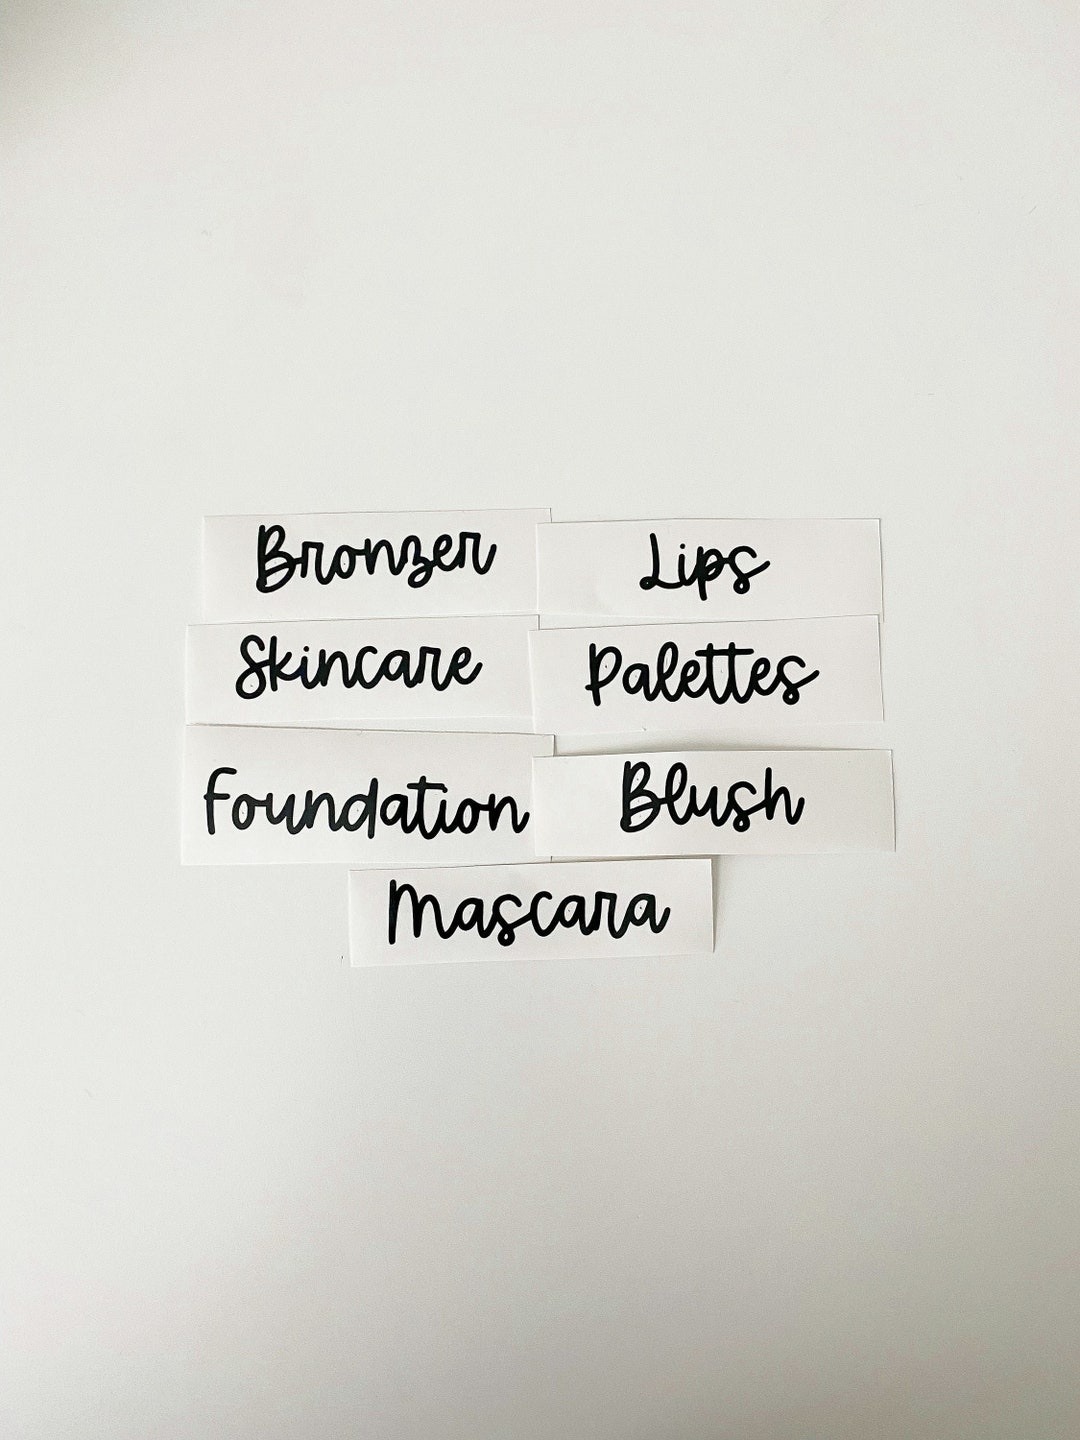 Bronzer
Lips
Skincare
Palettes
Foundation
Blush
Mascara